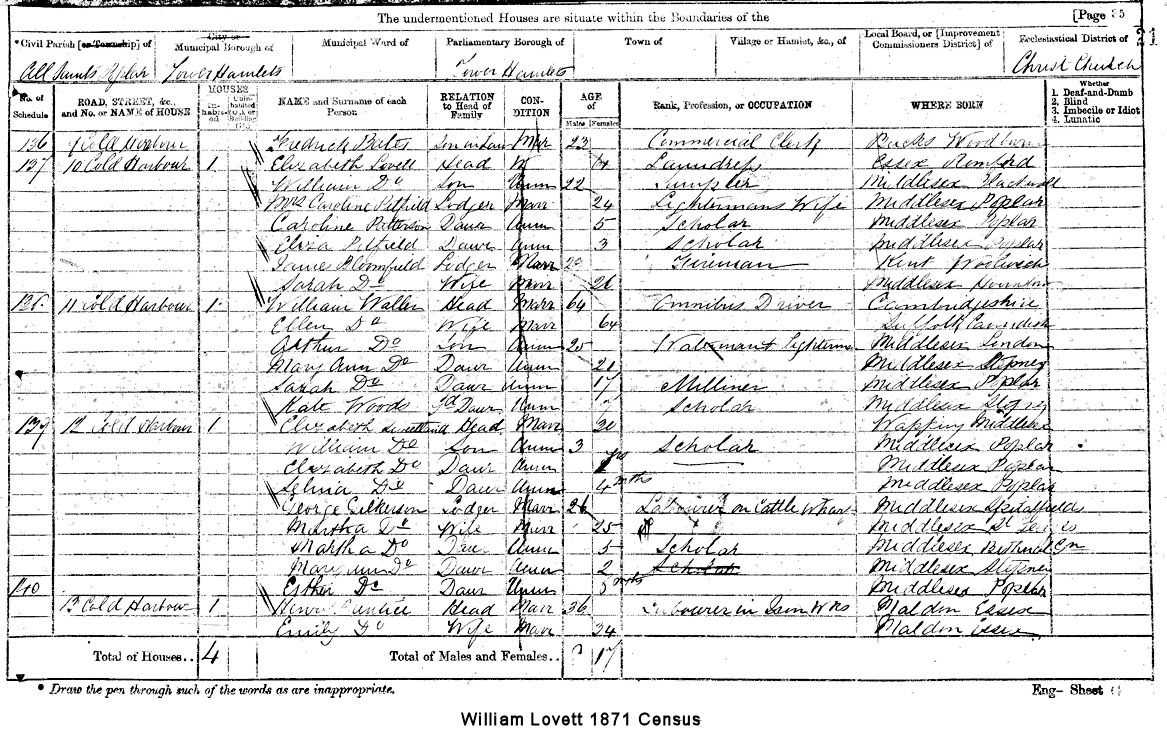 The undermentioned Houses are situate within the Boundaries of the
[Page 35
21
*Civil Parish [or Township] of
City or Municipal Borough of
Municipal Ward of
Parliamentary Borough of
Town of
Village or Hamlet, &c., of
Local Board, or [Improvement Commissioners District] of
Ecclesiastical District of
All Saints Poplar Tower Hamlets Tower Hamlets Christ Church
No. of Schedule
ROAD, STREET, &c., and No. or NAME of HOUSE
HOUSES
In-habited
NAME and Surname of each Person
RELATION to Head of Family
CON-DITION
AGE of
Males Females
Rank, Profession, or OCCUPATION
WHERE BORN
Whether
1. Deaf-and-Dumb
2. Blind
3. Imbecile or Idiot
4. Lunatic
136 9 Cold Harbour Fredrick Bates Son in Law Mar 23 Commercial Clerk Bucks
137 10 Cold Harbour 1 Elizabeth Lovett Head W Laundress Essex Romford
William Do Son Unm 22 Middlesex Blackwall
Mrs Caroline Petfield Lodger Marr 24 Lightermans Wife Middlesex Poplar
Caroline Patterson Dawr Unm 5 Scholar Middlesex Poplar
Eliza Petfield Dawr Unm 3 Scholar Middlesex Poplar
James Bloomfield Lodger Marr Fireman Kent Woolwich
Sarah Do Wife Marr 26 Middlesex
138 11 Cold Harbour 1 William Waller Head Marr 64 Omnibus Driver Cambridgeshire
Ellen Do Wife Marr 64 Suffolk Cavendish
Arthur Do Son Unm 25 Waterman & Lighterman Middlesex London
Mary Ann Do Dawr Unm 21 Middlesex Stepney
Sarah Do Dawr Unm 17 Milliner Middlesex Poplar
Kate Woods Gd Dawr Unm 7 Scholar Middlesex Stepney
139 12 Cold Harbour 1 Elizabeth Head Marr 30 Wapping Middlesex
William Do Son Unm 3 Scholar Middlesex Poplar
Elizabeth Do Dawr Unm Middlesex Poplar
Selina Do Dawr Unm 4 mths Middlesex Poplar
George Gilkerson Lodger Marr 26 Labourer on Cattle Wharf Middlesex Spitalfields
Martha Do Wife Marr 25 Middlesex St Georges
Martha Do Dawr Unm 5 Scholar Middlesex Bethnal Gn
Mary Ann Do Dawr Unm 2 Scholar Middlesex Stepney
140 Esther Do Dawr Unm mths Middlesex Poplar
13 Cold Harbour 1 Henry Head Marr 36 Labourer in Iron Wks Maldon Essex
Emily Do Wife Marr 34 Maldon Essex
Total of Houses.. 4
Total of Males and Females.. 17
* Draw the pen through such of the words as are inappropriate.
Eng- Sheet
William Lovett 1871 Census